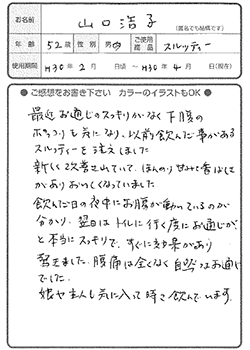 お名前 山口浩子 (匿名でも結構です)
年齢 52歳 性別 男・女 ご使用商品 スルッティー
使用期間 H30年2月 日頃 ～ H30年4月 日(現在)
● ご感想をお書き下さい カラーのイラストもOK ●
最近お通じのスッキリがなく下腹の
ポッコリも気になり、以前飲んだ事がある
スルッティーを注文しました
新しく改善されていて、ほんのり甘さと香ばしさ
がありおいしくなっていました
飲んだ日の夜中にお腹が動いているのが
分かり、翌日はトイレに行く度にお通じが、
と本当にスッキリで、すぐに効果があり
驚きました。腹痛は全くなく自然なお通じ
でした。
娘や主人も気に入って時々飲んでいます。